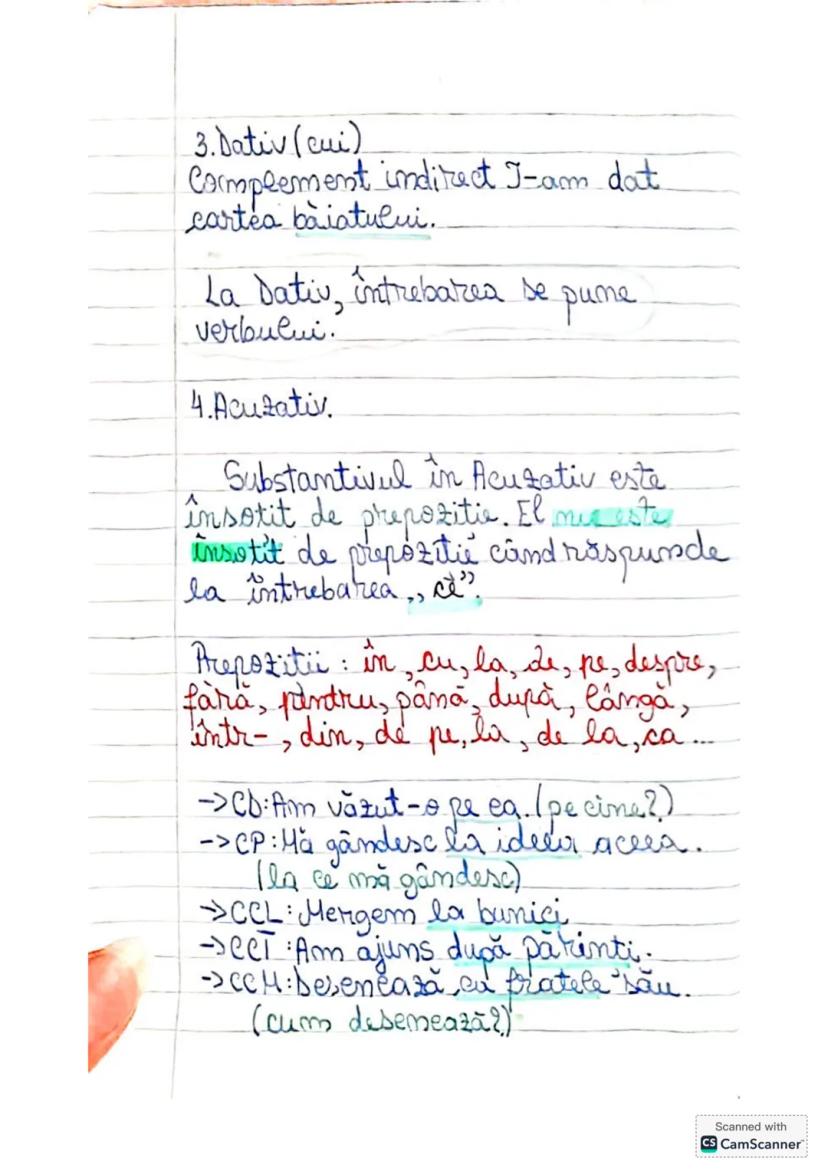 3.Dativ (cui)
Complement indirect I-am dat
cartea băiatului.
La Dativ, întrebarea se pune
verbului.
4.Acuzativ.
Substantivul în Acuzativ este
însotit de prepozitie. El nu este
însotit de prepozitie când răspunde
la întrebarea ,,ce".
Prepozitii : în, cu, la, de, pe, despre,
fără, pentru, până, după, lângă,
într-, din, de pe, la, de la, ca ...
->CD:Am văzut-o pe ea. (pe cine?)
->CP:Mă gândesc la ideea aceea.
(la ce mă gândesc)
->CCL:Mergem la bunici
->CCT:Am ajuns după părinti.
->CCM:Desenează cu fratele său.
(cum desenează?)
Scanned with
CS CamScanner